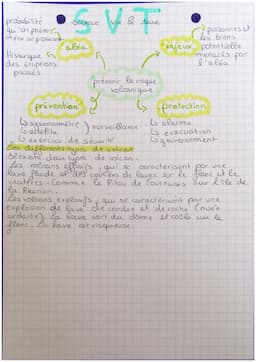 SVT
Science vie & terre
probabilité
qu'un phéno-
mène se produise
aléa
enjeux
personnes et
les biens
potentielle
menacés par
l'aléa
Historique
des éruptions
passés
prévenir le risque
volcanique
prévention
protection
↳ sysmomètre
↳ satélite
surveillance
↳ exercice de sécurité
↳ alarme
↳ évacuation
↳ gouvernement
Les différents types de volcan
Il existe deux types de volcan.
Les volcans effusifs, qui se caractérisent par une
lave fluide et des coulées de laves sur le flanc et le
cratères. Comme le Piton de Fournaise sur l'île de
la Réunion.
Les volcans explosifs, qui se caractérisent par une
explosion de lave de cendre et de roche (nuée
ardente). La lave sort du dôme et coule sur le
flanc. La lave est visqueuse.